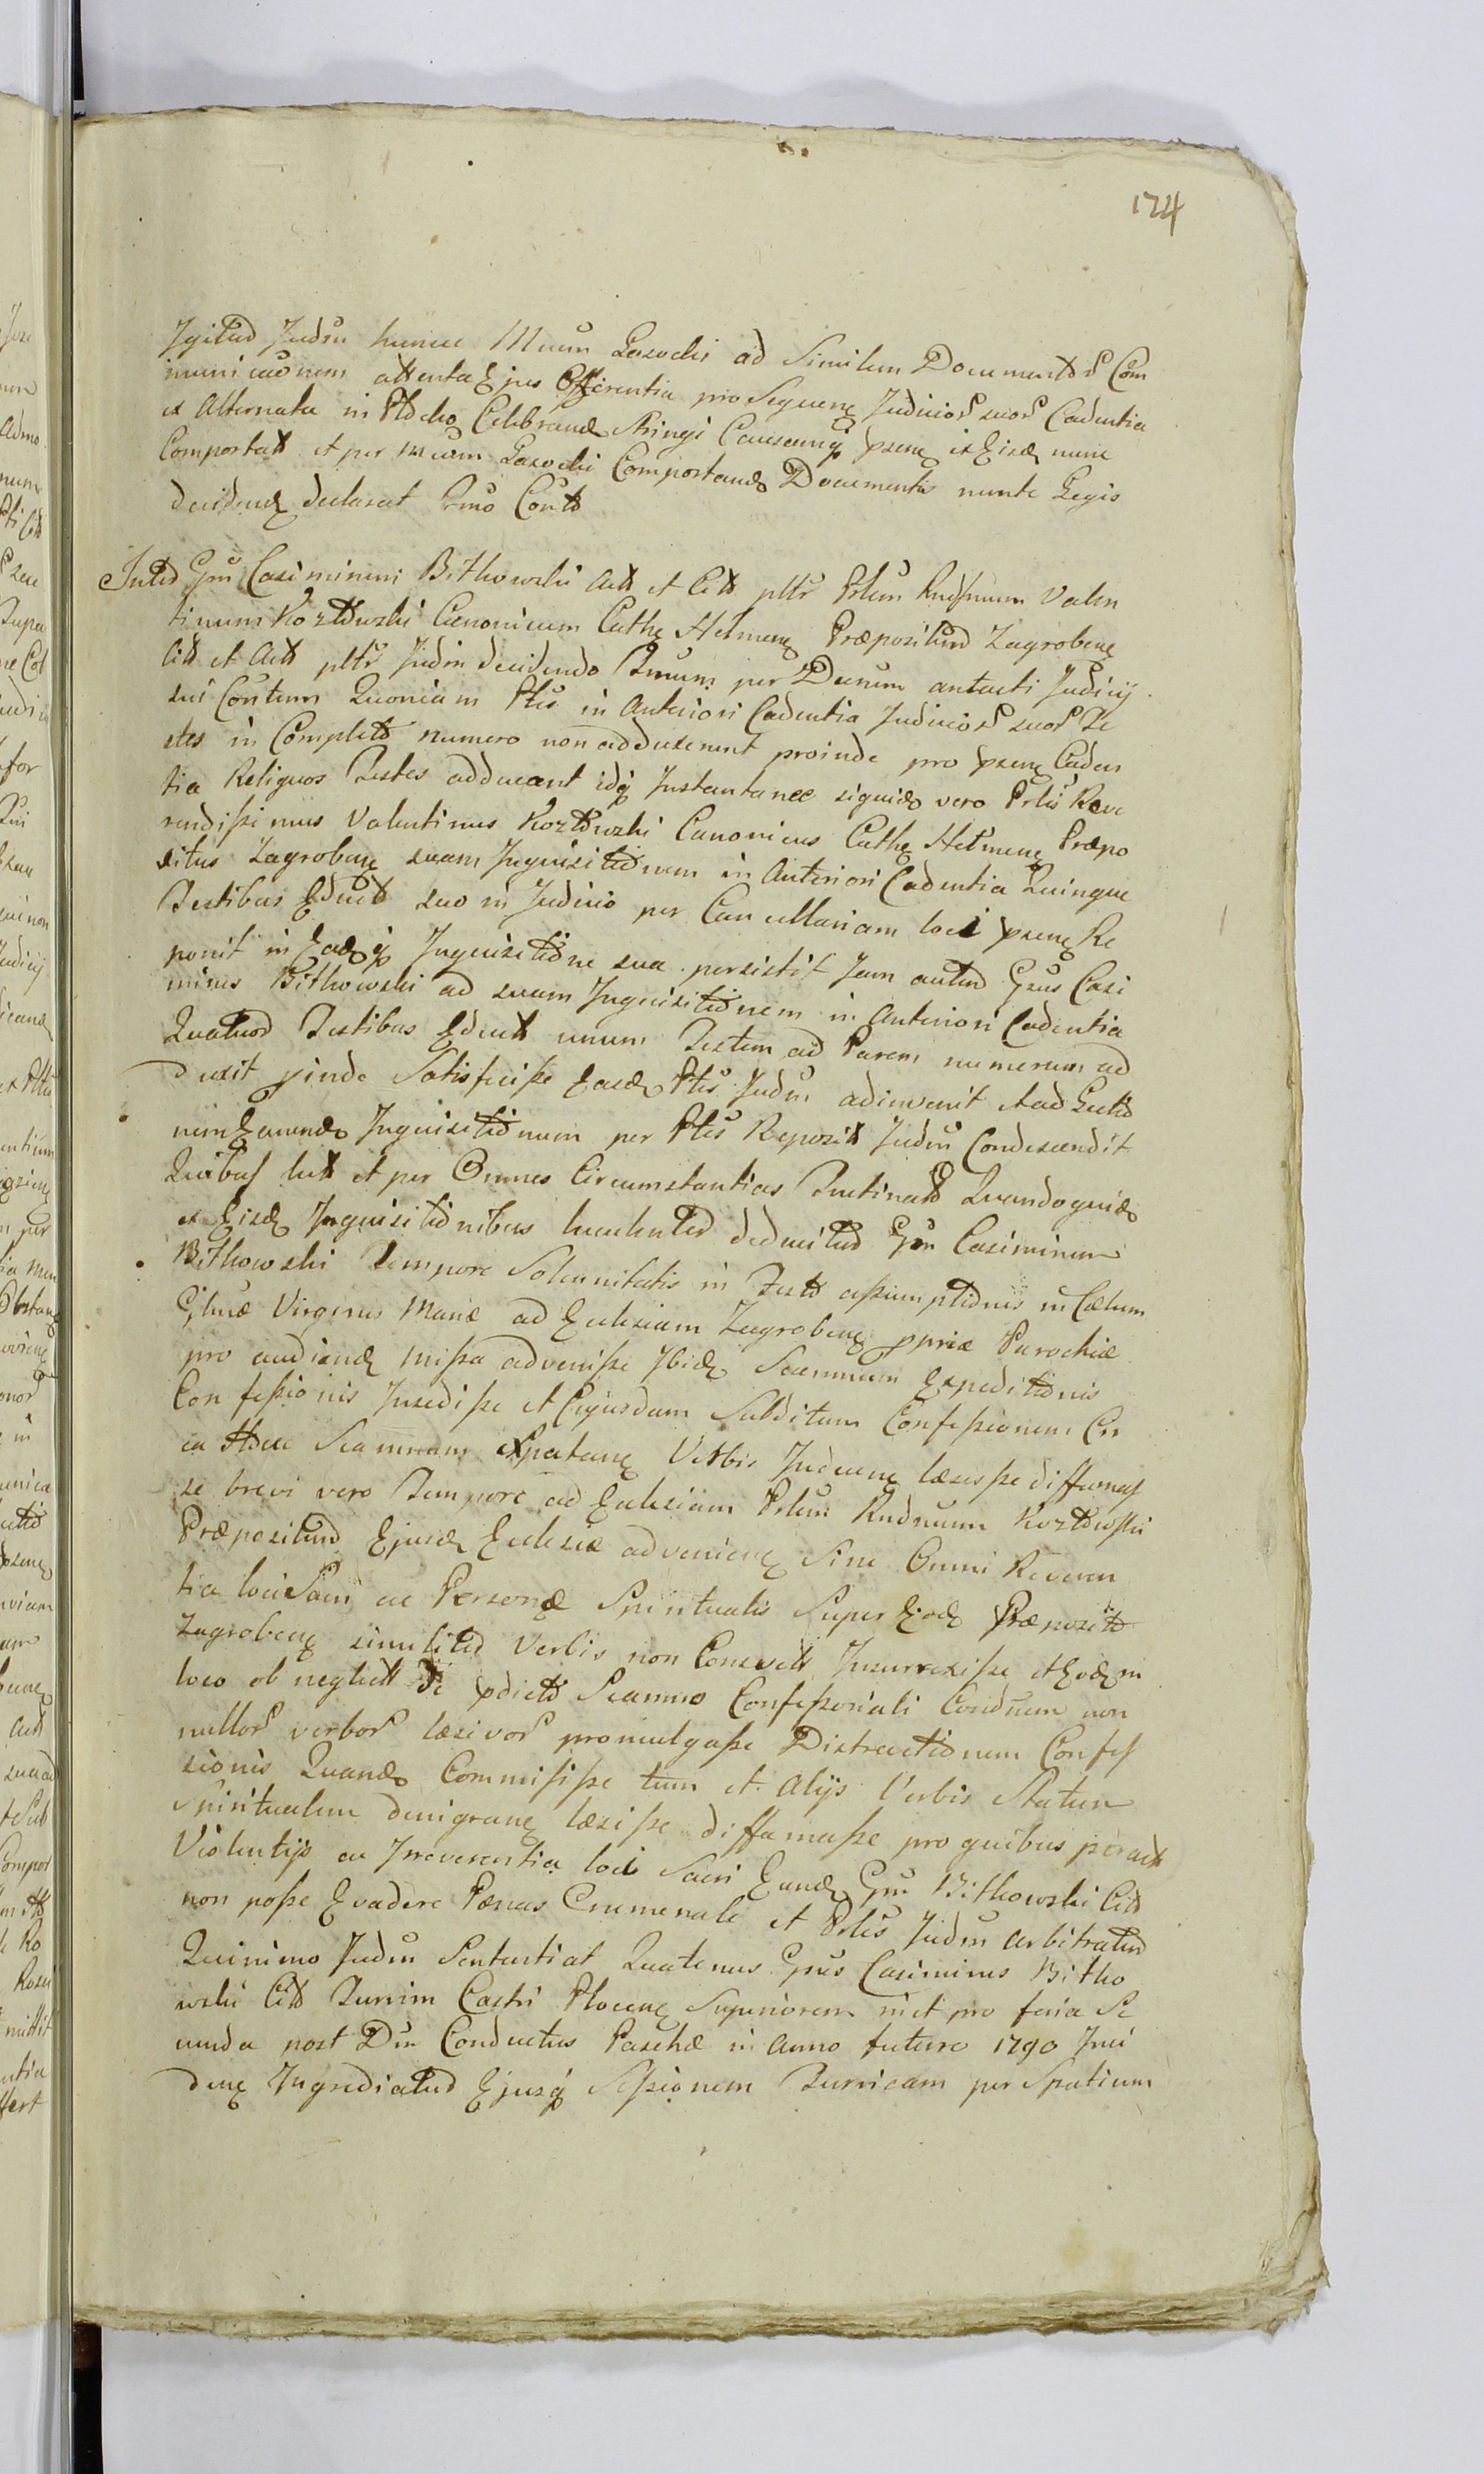 174
Igitur Judm hunce Mcum Lasocki ad Similem Documentor Com
municaonem attenta Ejus Offerentia pro Sequen Judicior suor Cadentia
ex Alternata in Plocko Celebrand Stringi Causamq praesen ex Eisd nunc
Comportatt et per Mcum Lasocki Comportand Documentis mente Legis
decidend declarat Tmo Contt
Inter Gsm Casimirum Bitkowski Actt et Citt pltr Prlem Rndssmum Valen
tinum Kozłowski Canonicum Cathe Helmens Præpositum Zagrobens
Citt et Actt pltr Judm decidendo Tmum per Decrum antacti Judicij
sui Contum Quoniam Ptes in Anteriori Cadentia Judicior suor Te
stes in Complett numero non adduxerunt proinde pro praesen Caden
tia Reliquos Testes adducant idq Instantanee siquid vero Prlus Reve
rendissimus Valentinus Kozłowski Canonicus Cathe Helmens Præpo
situs Zagrobens suam Inquisitionem in Anteriori Cadentia Quinque
Testibus Eductt suo in Judicio per Cancellariam loci praesen Re
ponit in Eadq Inquisitione sua persistit Jam autem Gsus Casi
mirus Bitkowski ad suam Inquisitionem in Anteriori Cadentia
Quatuor Testibus Eductt unum Testem ad Parem numerum ad
duxit pinde Satisfecisse Easd Ptes Judm adinvenit et ad Lectio
nem Earund Inquisitionum per Ptes Repositt Judm Condescendit
Quibus lectt et per Omnes Circumstantias Trutinatt Quandoquid
ex Eisd Inquisitionibus luculenter deducitur Gsm Casimirum
Bitkowski Tempore Solennitatis in Festo assumptionis in Cælum
Glmæ Virginis Mariæ ad Ecclesiam Zagrobens ppriæ Parochiæ
pro audiend Missa advenisse Ibid Scamnum Expeditionis
Confessionis Insedisse et Cujusdam Subditum Confessionem Cir
ca Hocce Scamnum Expectan Verbis Indecen læsisse diffamas
se brevi vero Tempore ad Ecclesiam Prlem Rndmum Kozłowski
Præpositum Ejusd Ecclesiæ advenien Sine Omni Reveren
tia loci Sacri ac Personæ Spiritualis Super Eod Præposito
Zagrobens similiter Verbis non Consvett Insurrexisse et Eod in
loco ob neglectt de pdicto Scamno Confessionali Condnum non
nullor verbor læsivor promulgasse Distractionem Confes
sionis Quand Commisisse tum et Alijs Verbis Statum
Spiritualem denigran læsisse diffamasse pro quibus peractt
Violentijs ac Irreverentia loci Sacri Eund Gsm Bitkowski Citt
non posse Evadere Pænas Criminale et Prlis Judm arbitratur
Quinimo Judm Sententiat Quatenus Gsus Casimirus Bitko
wski Citt Turrim Castri Plocens Superiorem niet pro feria Se
cunda post Dm Conductus Paschæ in Anno futuro 1790 Inci
den Ingrediatur Ejusq Sessionem Turricam per Spatium